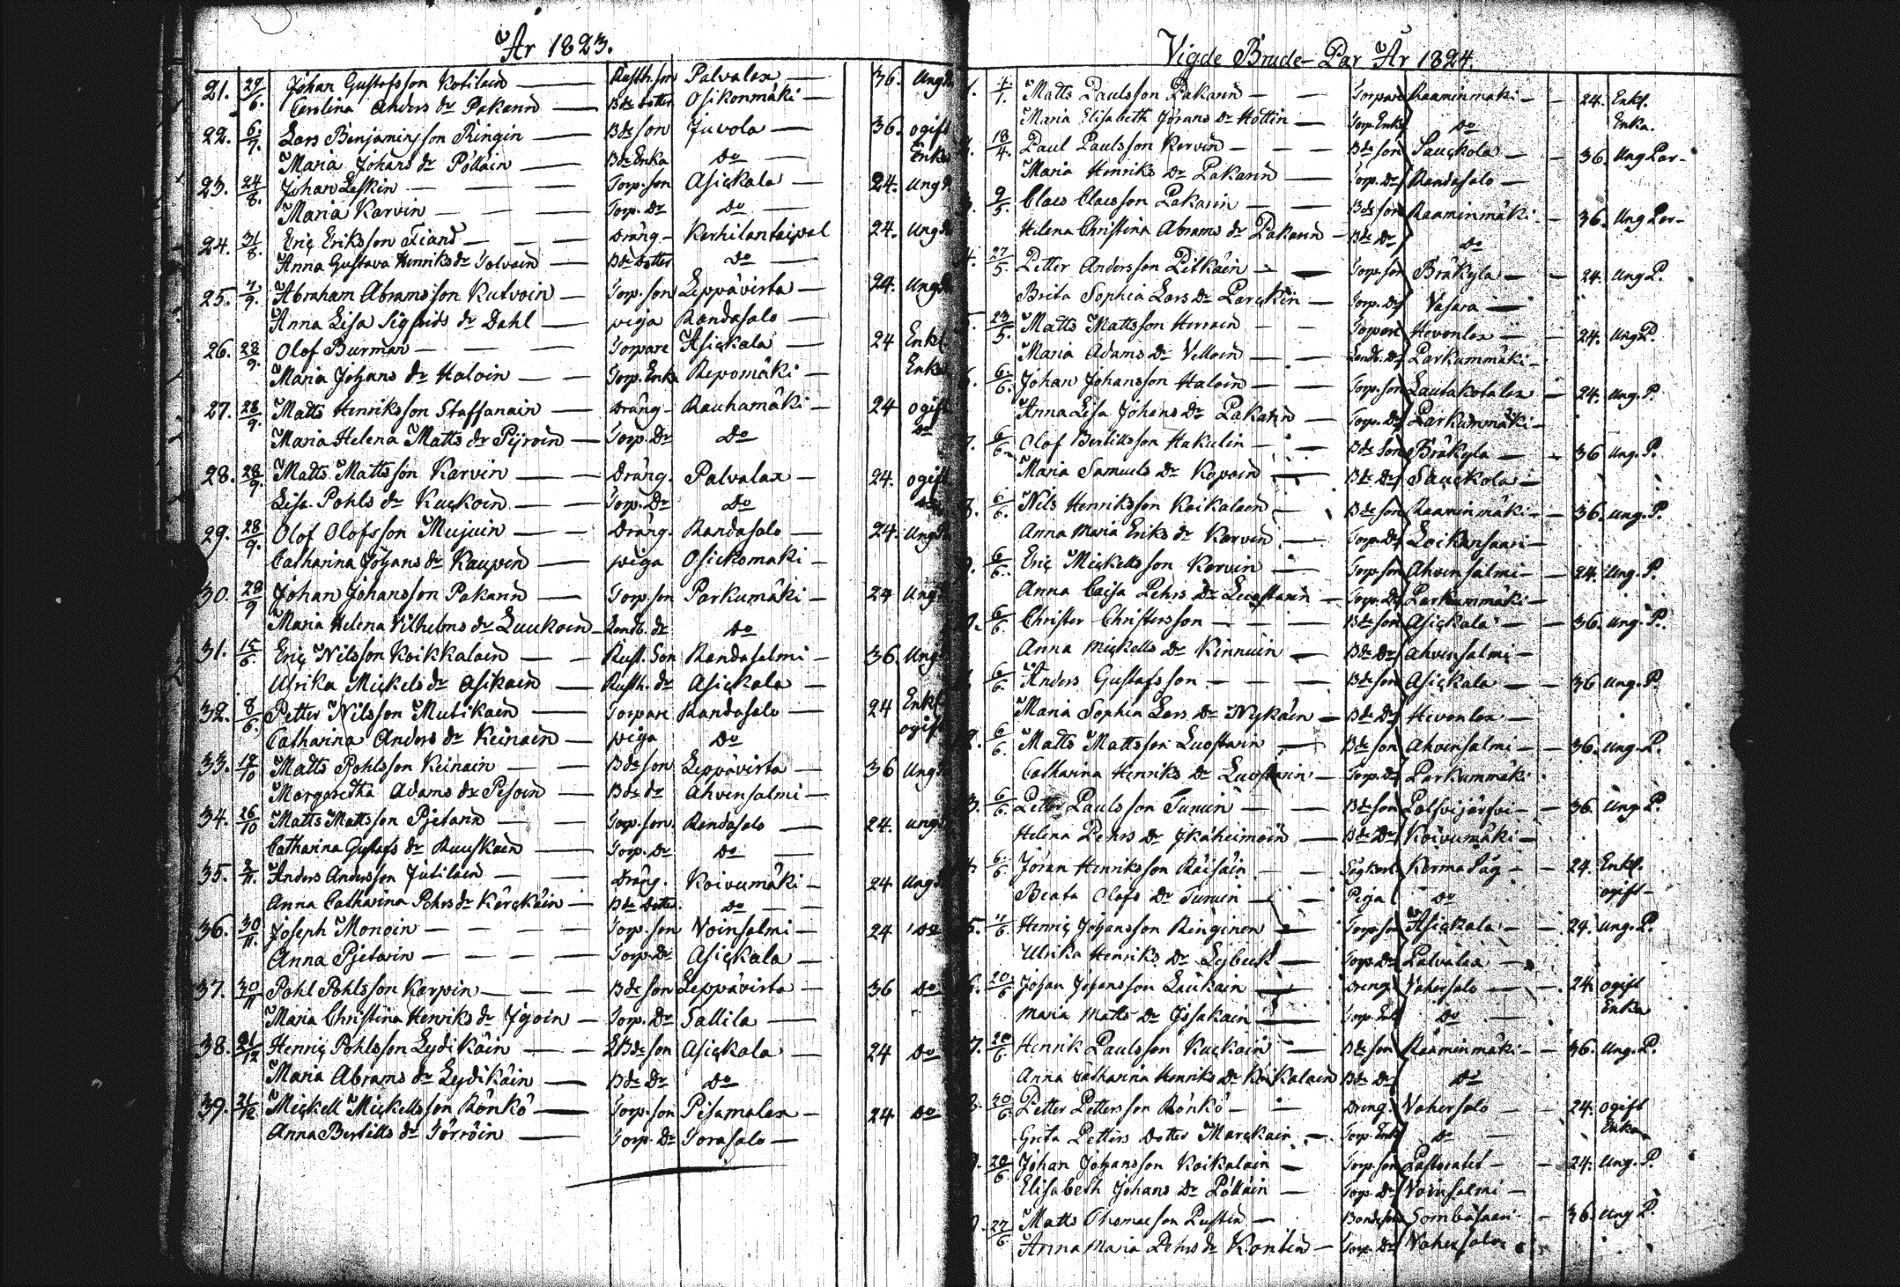 År 1823.
21. 29/6. Johan Gustafsson Kotilain — Rusth.son Palvalax — 36. Ung
Carolina Anders Dr Pakarin — Bde dotter Osikonmäki —
22. 6/7. Lars Benjaminsson Ringin — Bde son Juvola — 36. ogift
Maria Johans Dr Pöllöin — Bde Enka Do — Enka
23. 24/8. Johan Leskin — — — Torp. son Asickala — 24. Ung
Maria Karvin — — — Torp. Dr Do —
24. 31/8. Eric Eriksson Fiand — — Dräng — Kerhilantaipal 24. Ung
Anna Gustava Henriks dr Tolvain — Bde dotter Do —
25. 7/9. Abraham Abramsson Kutvoin — Torp. son Leppävirta — 24. Ung
Anna Lisa Sigfrids dr Dahl — piga Randasalo —
26. 28/9. Olof Burman — — — Torpare Asickala — 24 Enkl.
Maria Johans dr Haloin — — Torp. Enka Repomäki — Enka
27. 28/9. Matts Henriksson Staffanain — Dräng — Rauhamäki — 24 ogift
Maria Helena Matts dr Pijroin — Torp. Dr Do Do
28. 28/9. Matts Mattsson Karvin — Dräng. Palvalax — 24. ogift
Lisa Pohls dr Kuckoin — Torp. Dr Do Do
29. 28/9. Olof Olofsson Mujuin — Dräng. Randasalo — 24. Ung
Catharina Johans dr Kaupin — piga Osickomäki —
30. 28/9 Johan Johansson Pakarin — Torp. son Parkumäki — 24 Ung
Maria Helena Vilhelms dr Luukoin — Landb. dr Do
31. 15/6. Eric Nilsson Koikkalain — — Rust. Son Randasalmi — 36 Ung
Ulrika Mickels dr Asikain — Rusth. dr Asickala —
32. 8/6. Petter Nilsson Mutikain — Torpare Randasalo — 24 Enkl.
Catharina Anders dr Keinain — piga Do ogift
33. 12/10 Matts Pohlsson Keinain — — Bde son Leppävirta — 36 Ung
Margaretha Adams dr Pesoin — Bde dr Ahvensalmi —
34. 26/10 Matts Mattsson Pjetarin — — Torp. son. Randasalo — 24. ung
Catharina Gustafs dr Ruuskain — Torp. Dr Do —
35. 2/11. Anders Andersson Jutilain — — Dräng. Koivumäki — 24 Ung
Anna Catharina Pehrs dr Kärckäin — Bde Dotter. Do — —
36. 30/11. Joseph Monoin — — — — Torp. son Voinsalmi — 24 Do
Anna Pjetarin — — — — Torp. Dr Asickala —
37. 30/11 Pohl Pohlsson Karvin — — — Bde Son Leppävirta — 36 Do
Maria Christina Henriks dr Jgoin — Torp. Dr Sallila —
38. 21/12 Henric Pohlsson Lydikäin — — Bde son Asickala — 24 Do
Maria Abrams dr Lydikäin — Bde Dr Do
39. 21/12 Mickell Mickellsson Rönkö — Torp. son Pisamalax — 24 Do
Anna Bertills dr Törröin — Torp. Dr Torasalo —
Vigde Brude-Par År 1824.
Matts Paulsson Pakarin — — Torpare Raaminmäki — — 24. Enkl.
Maria Elisabeth Jörans dr Hottin — Torp. Enka Do Enka.
18/4. Paul Paulsson Kervin — — — Bde son Sauckola — — 36. Ung Par —
Maria Henriks Dr Pakarin — Torp. Dr Randasalo —
9/5. Claes Claesson Pakarin — — Bde son Raaminmäki — — 36. Ung Par —
Helena Christina Abrams dr Pakarin — Bde Dr Do
27/5. Petter Andersson Pitkäin — — Torp. son Bräkyla — — 24. Ung P.
Brita Sophia Lars Dr Parckin — Torp. Dr Vasara —
23/5. Matts Mattsson Herrain — — Torpare Hevonlax — — 24. Ung P.
Maria Adams Dr Velloin — — Landb. Dr Parkummäki —
6/6. Johan Johansson Haloin — — Torp. son Lautakotalax — 24. Ung. P.
Anna Lisa Johans Dr Pakarin — Torp. Dr Parkummäki —
6/6. Olof Bertillsson Hakulin — — Bde Son Bräkyla — — 36 Ung. P.
Maria Samuels Dr Kopoin — Bde Dr Sauckola —
6/6. Nils Henriksson Koikalain — Bde son Raaminmäki — — 36. ung. P.
Anna Maria Eriks dr Karvin — Torp. Dr Loikansaari —
6/6. Eric Mickellsson Kervin — Torp. son Ahvensalmi — — 24. Ung. P.
Anna Caisa Pehrs Dr Luostarin — Torp. Dr Parkummäki —
6/6. Christer Christersson — — — Bde son Asickala — — 36. Ung. P.
Anna Mickells Dr Kinnuin — Bde Dr Ahvensalmi —
6/6. Anders Gustafsson — — — Bde son Asickala — — 36 Ung. P.
Maria Sophia Lars Dr Nykäin — Bde Dr Hevonlax —
6/6. Matts Mattsson Luostarin — Bde son Ahvensalmi — — 36. Ung. P.
Catharina Henriks Dr Luostarin — Torp. Dr Parkummäki
6/6. Petter Paulsson Turuin — — Bde son Palvijärfvi — — 36. Ung P.
Helena Pehrs Dr Ikäheimoin — Bde Dr Koivumäki —
6/6 Jöran Henriksson Räisäin — — Kerma Såg — — 24. Enkl.
Beata Olofs Dr Turuin — Piga Do ogift —
Henric Johansson Ringinen — Torp. son Asickala — — 24. Ung. P.
Ulrika Henriks Dr Lejbeck — Torp. Dr Palvalax —
20/6 Johan Johansson Laukain — Dreng. Vahersalo — — 24. ogift
Maria Matts Dr Josakain — Torp. Enk Do — Enka
20/6 Henrik Paulsson Kuckoin — Bde son Raaminmäki — — 36. Ung. P.
Anna Catharina Henriks Dr Koikalain Bde Dr Do
20/6 Petter Pettersson Rönkö — — Dreng. Vahersalo — 24. ogift
Greta Petters Dotter Marckain — Torp. Enk Do Enka
20/6 Johan Johansson Koikalain — Torp. son Pastoratet — — 24. Ung. P.
Elisabeth Johans Dr Pöllöin — Torp. Dr Voinsalmi —
27/6 Matts Thomasson Pustin — Bondeson Sombasaari — 36. Ung P.
Anna Maria Pehrs dr Kontin — Torp. Dr Vahersalo